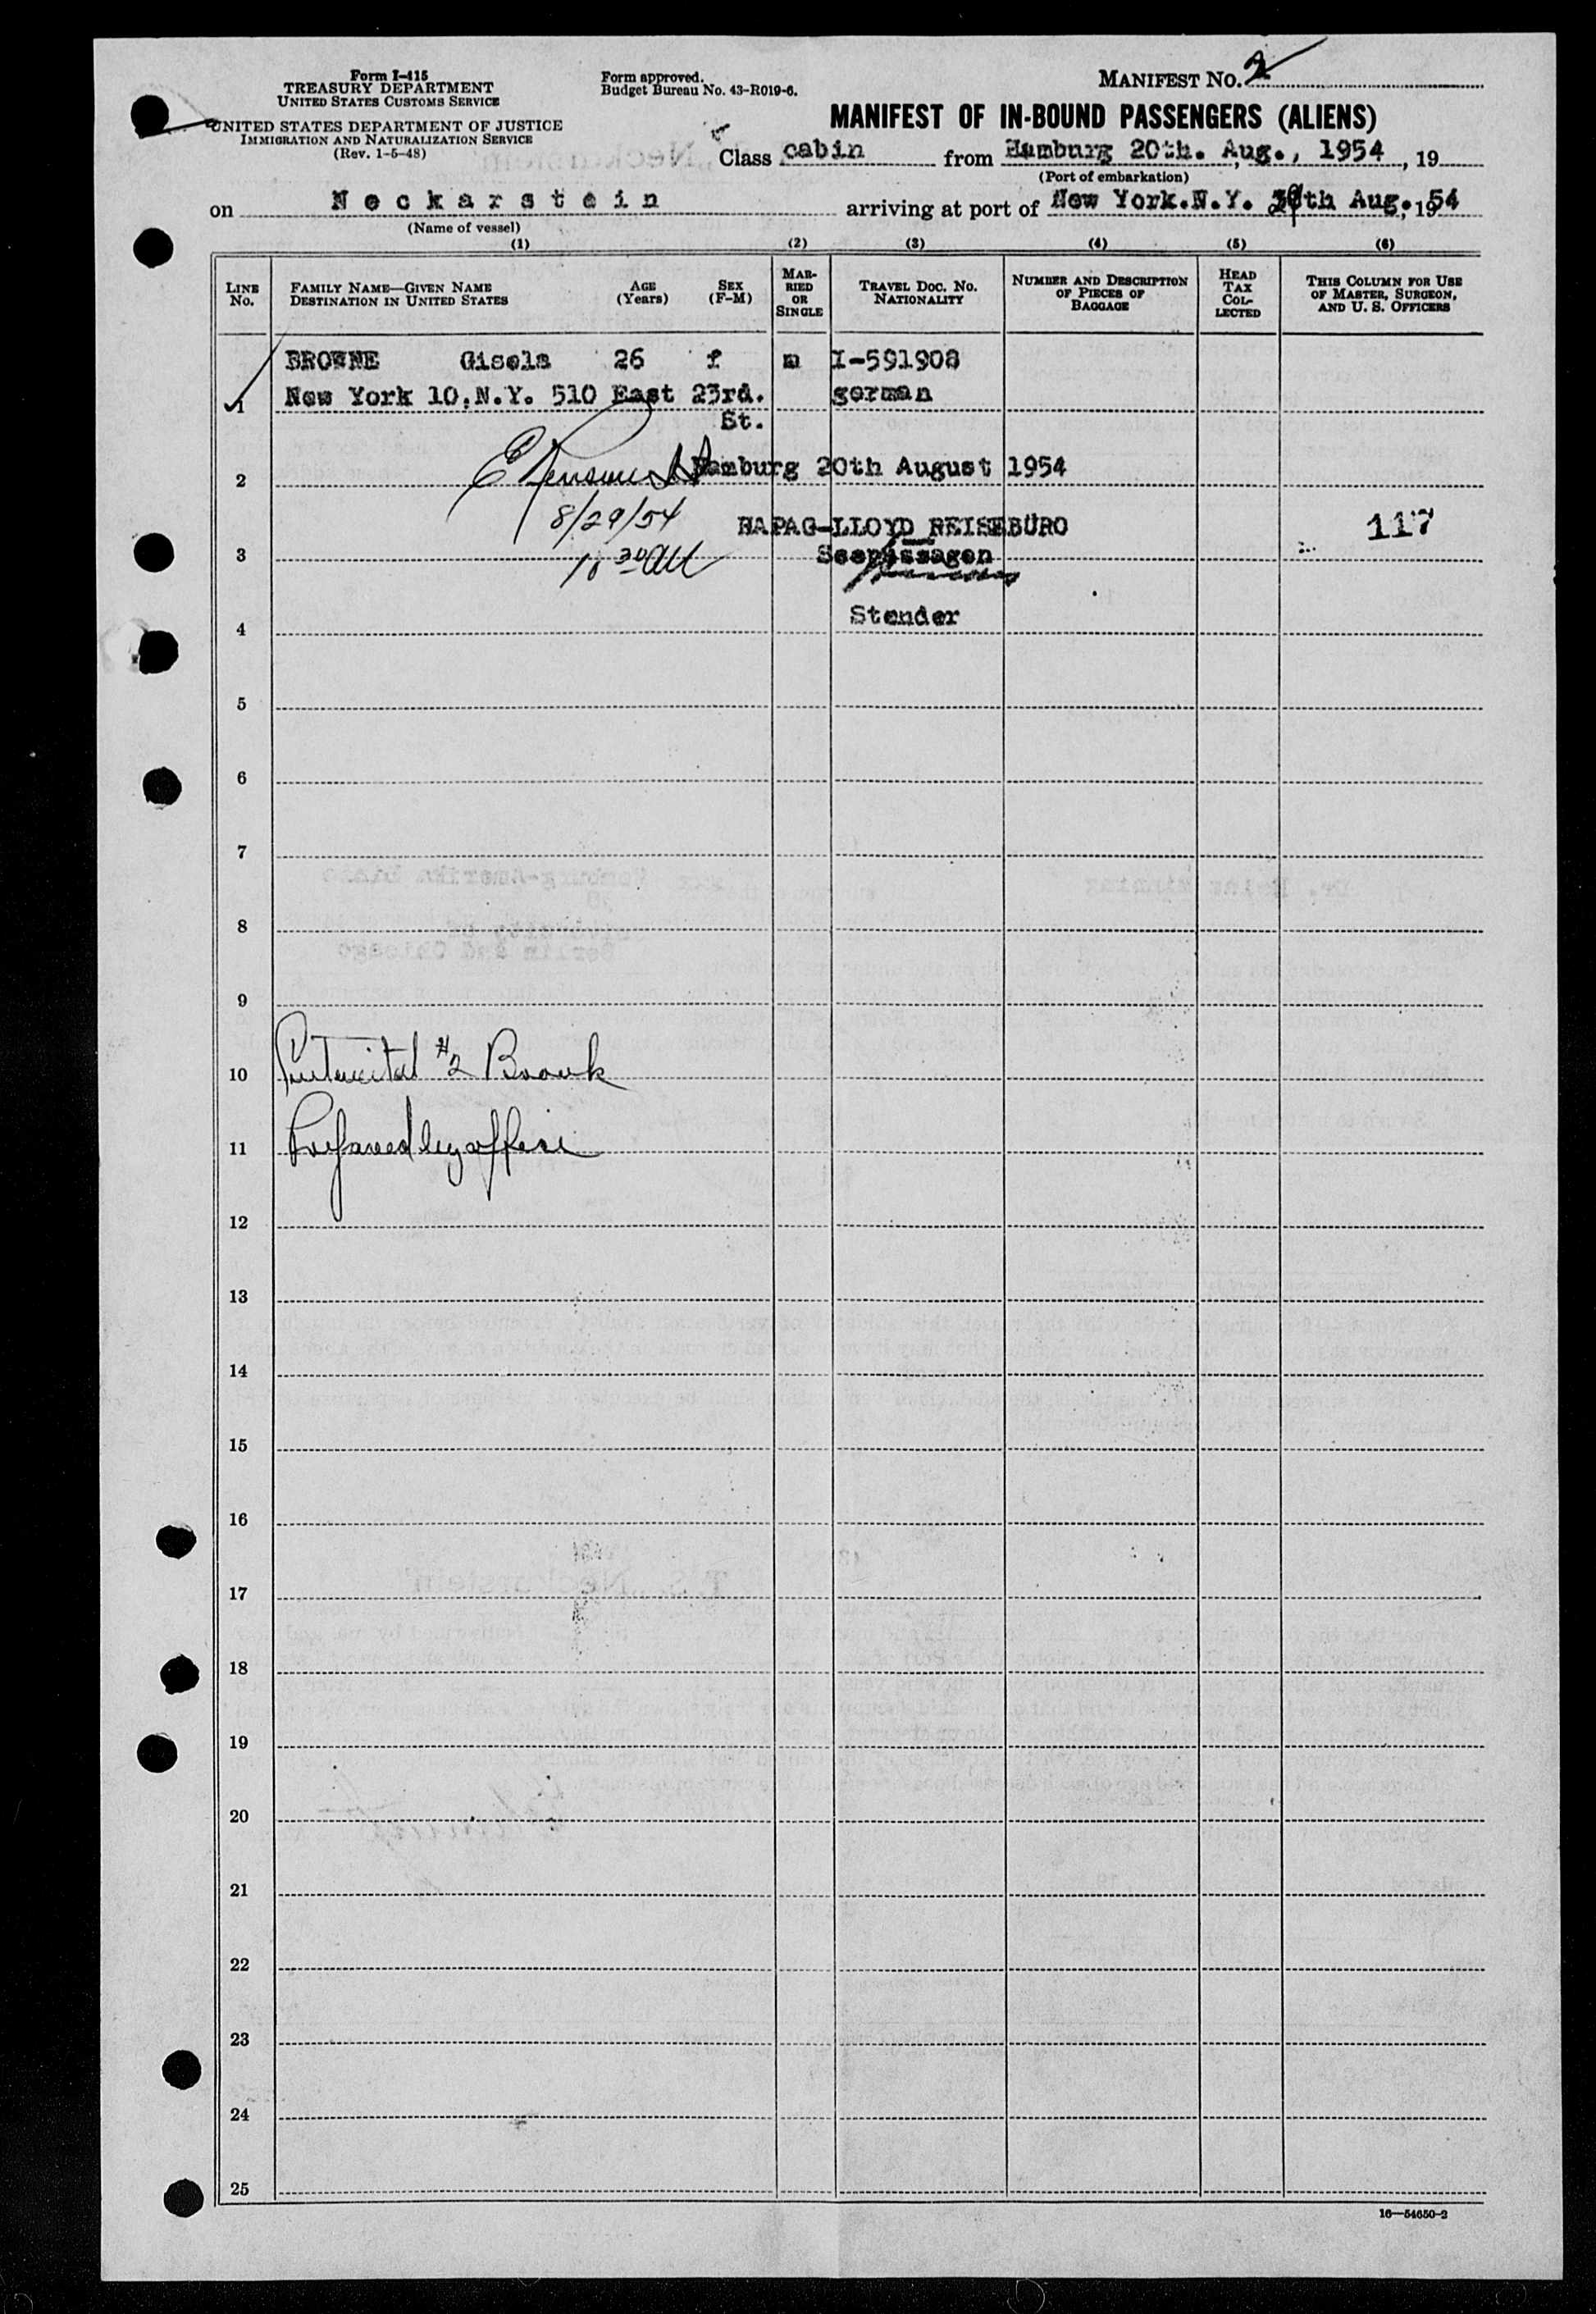 Form I-415
TREASURY DEPARTMENT
UNITED STATES CUSTOMS SERVICE
UNITED STATES DEPARTMENT OF JUSTICE
IMMIGRATION AND NATURALIZATION SERVICE
(Rev. 1-5-48)
Form approved.
Budget Bureau No. 43-R019-6.
MANIFEST NO. 2
MANIFEST OF IN-BOUND PASSENGERS (ALIENS)
Class cabin from Hamburg 20th. Aug., 1954, 19
(Port of embarkation)
on Neckarstein arriving at port of New York.N.Y. th Aug., 1954
(Name of vessel)
(1) (2) (3) (4) (5) (6)
LINE No.
FAMILY NAME—GIVEN NAME
DESTINATION IN UNITED STATES
AGE (Years)
SEX (F-M)
MARRIED OR SINGLE
TRAVEL DOC. NO.
NATIONALITY
NUMBER AND DESCRIPTION OF PIECES OF BAGGAGE
HEAD TAX COLLECTED
THIS COLUMN FOR USE OF MASTER, SURGEON, AND U. S. OFFICERS
BROWNE Gisela 26 f m I-591908
1 New York 10.N.Y. 510 East 23rd. german
St.
2 Hamburg 20th August 1954
8/29/54 HAPAG-LLOYD REISEBÜRO 117
3 10 30 AM Seepassagen
4 Stender
5
6
7
8
9
10 #2
11 Prepared by office
12
13
14
15
16
17
18
19
20
21
22
23
24
25
16—54650-2